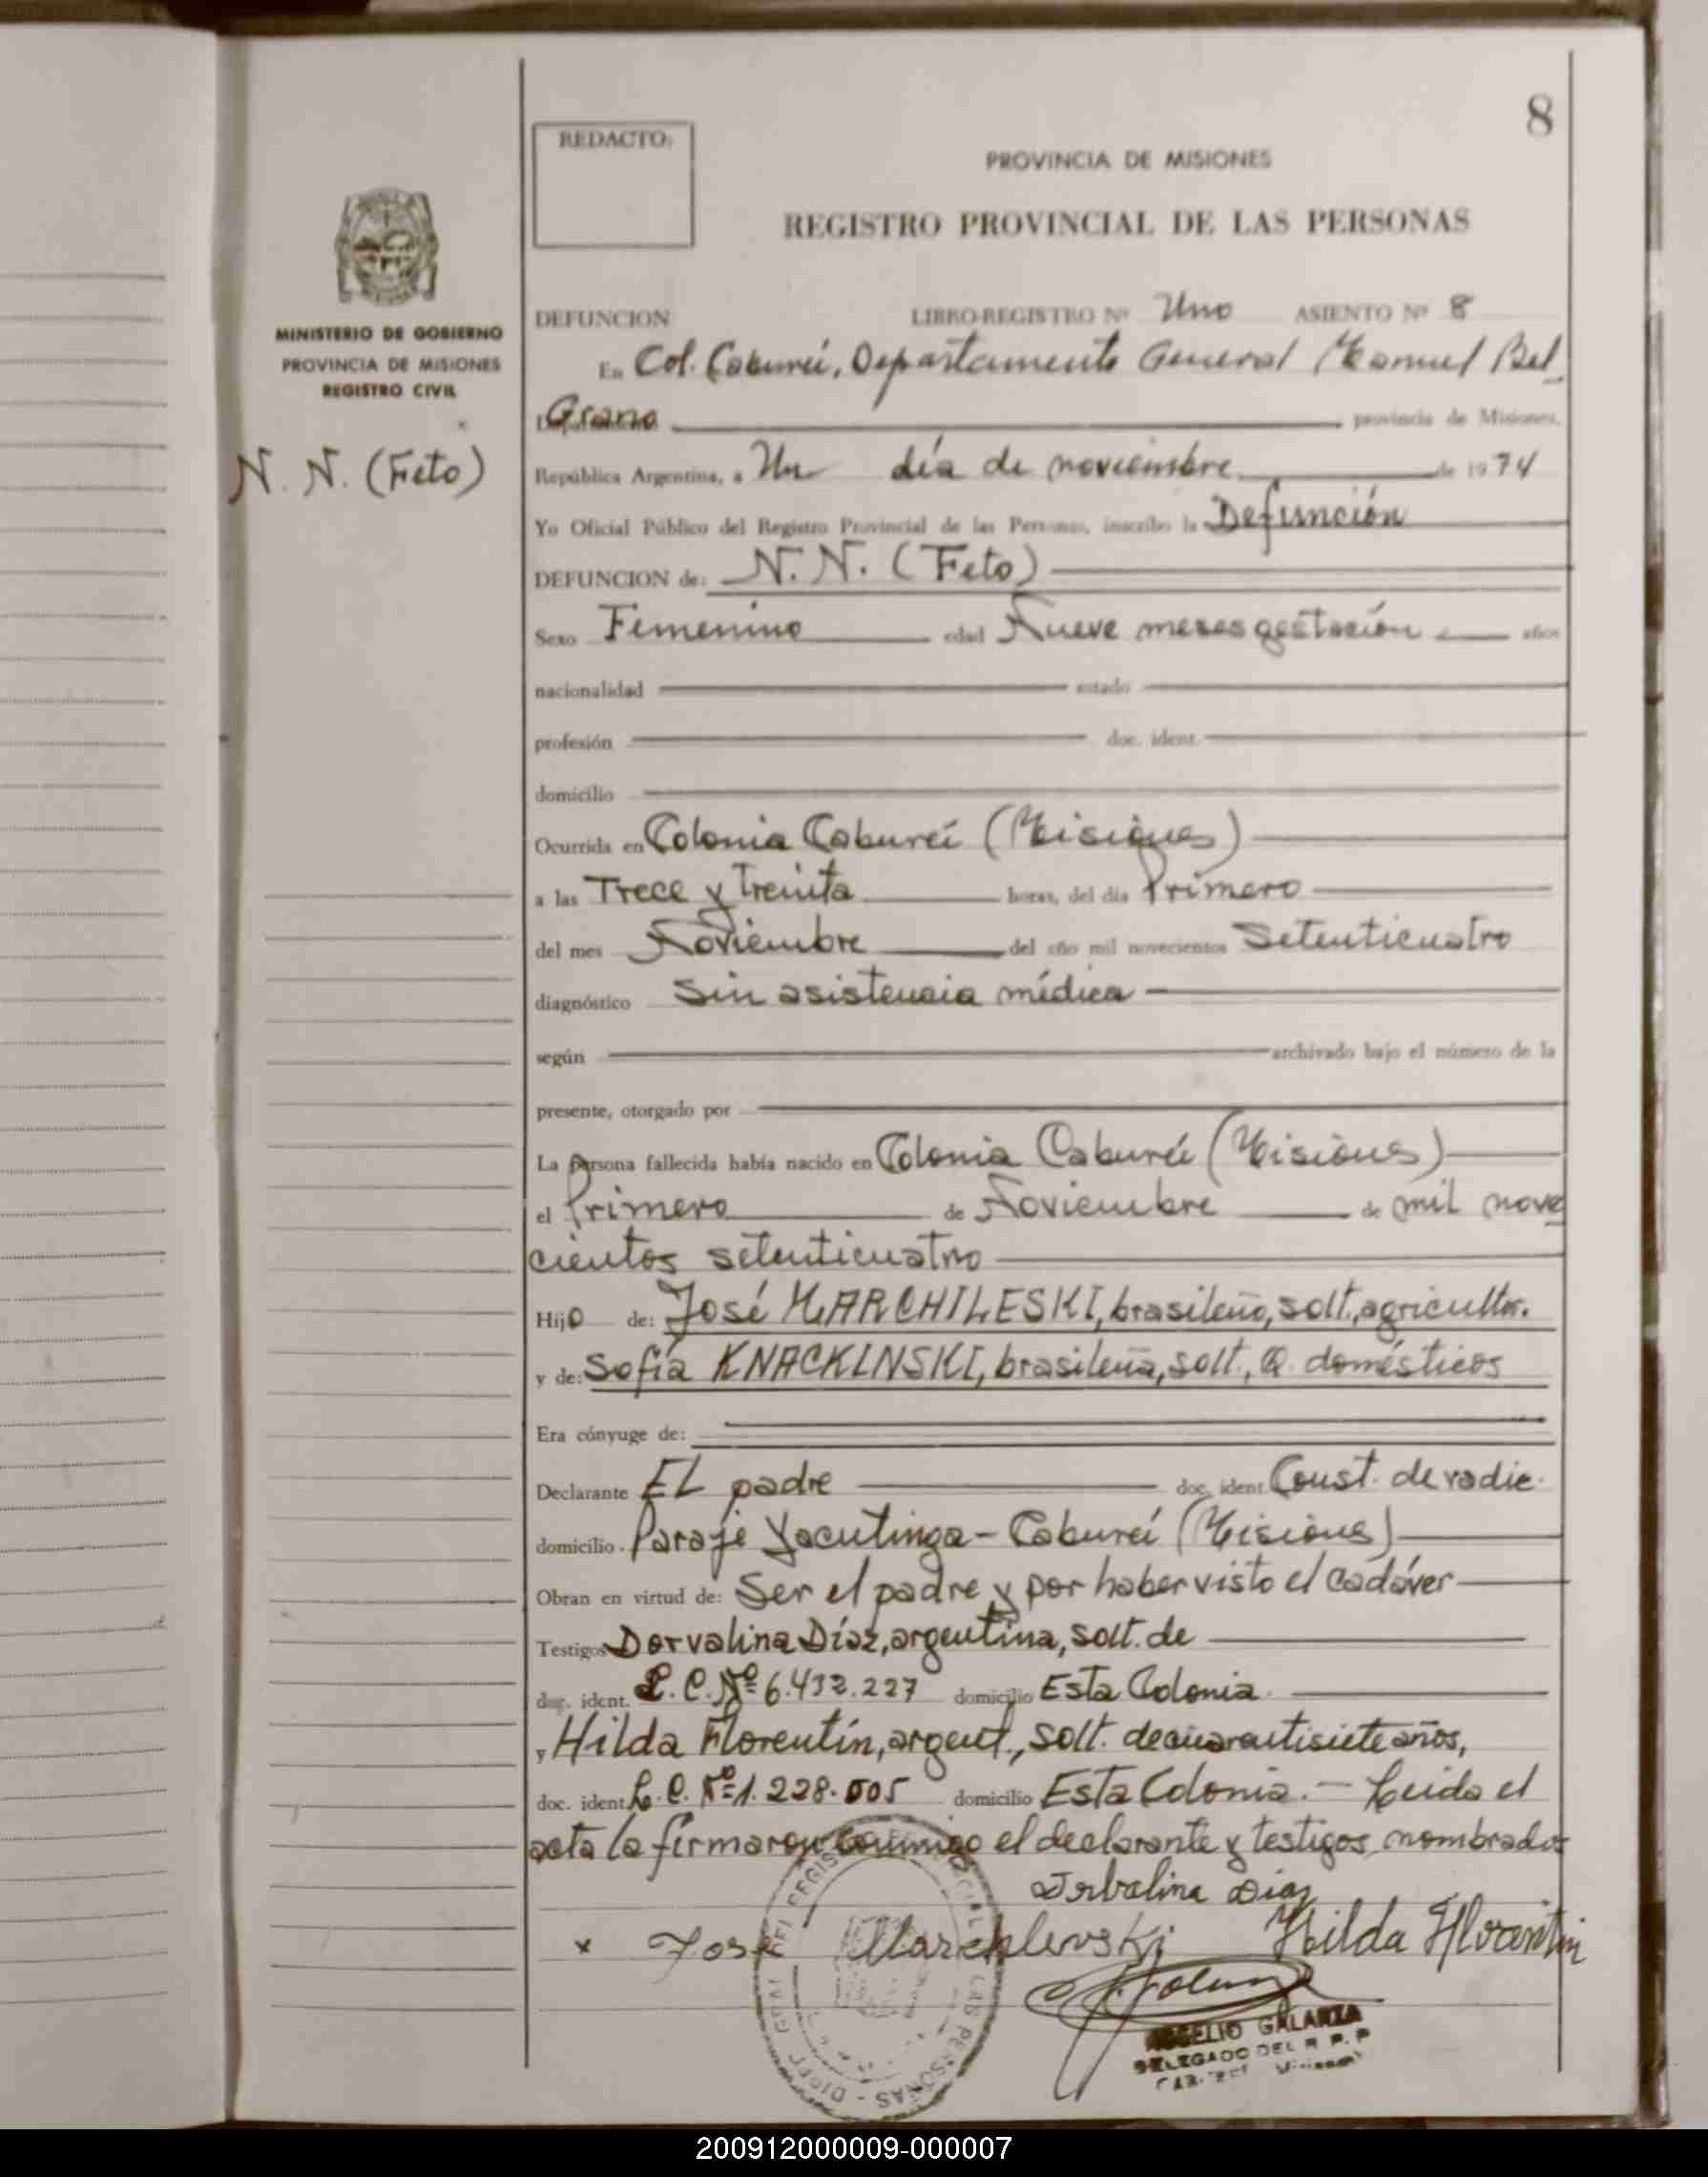 8
REDACTO:
PROVINCIA DE MISIONES
REGISTRO PROVINCIAL DE LAS PERSONAS
MINISTERIO DE GOBIERNO
PROVINCIA DE MISIONES
REGISTRO CIVIL
N. N. (Feto)
DEFUNCION LIBRO-REGISTRO Nº Uno ASIENTO Nº 8
En Col. Caburei, Departamento General Manuel Bel
Grano provincia de Misiones,
República Argentina, a Un día de noviembre de 1974
Yo Oficial Público del Registro Provincial de las Personas, inscribo la Defunción
DEFUNCION de: N. N. (Feto)
Sexo Femenino edad Nueve meses gestación años
nacionalidad estado
profesión doc. ident.
domicilio
Ocurrida en Colonia Caburei (Misiones)
a las Trece y treinta horas, del día Primero
del mes Noviembre del año mil novecientos Setenticuatro
diagnóstico Sin asistencia médica
según archivado bajo el número de la
presente, otorgado por
La persona fallecida había nacido en Colonia Caburei (Misiones)
el Primero de Noviembre de mil nove
cientos setenticuatro
Hijo de: José MARCHILESKI, brasileño, solt., agricultor.
y de: Sofía KNACKINSKI, brasileña, solt., Q. domésticos
Era cónyuge de:
Declarante EL padre doc. ident. Const. de radic.
domicilio Paraje Yacutinga - Caburei (Misiones)
Obran en virtud de: Ser el padre y por haber visto el cadáver
Testigos Dorvalina Díaz, argentina, solt. de
doc. ident. L. C. Nº 6.432.227 domicilio Esta Colonia.
y Hilda Florentín, argent., solt. de cuarentisiete años,
doc. ident. L. C. Nº 1.228.005 domicilio Esta Colonia. - Leida el
acta la firmaron conmigo el declarante y testigos nombrados
Dorbalina Diaz
x José Marchlevski Hilda Florentin
ROGELIO GALARZA
DELEGADO DEL R. P. P.
200912000009-000007